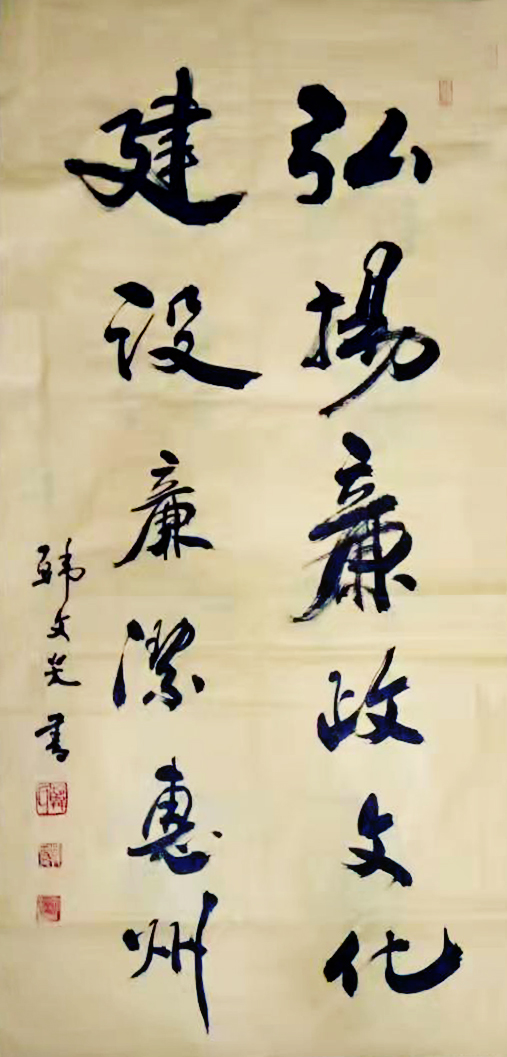 弘揚廉政文化
建设廉潔惠州
韩文光書